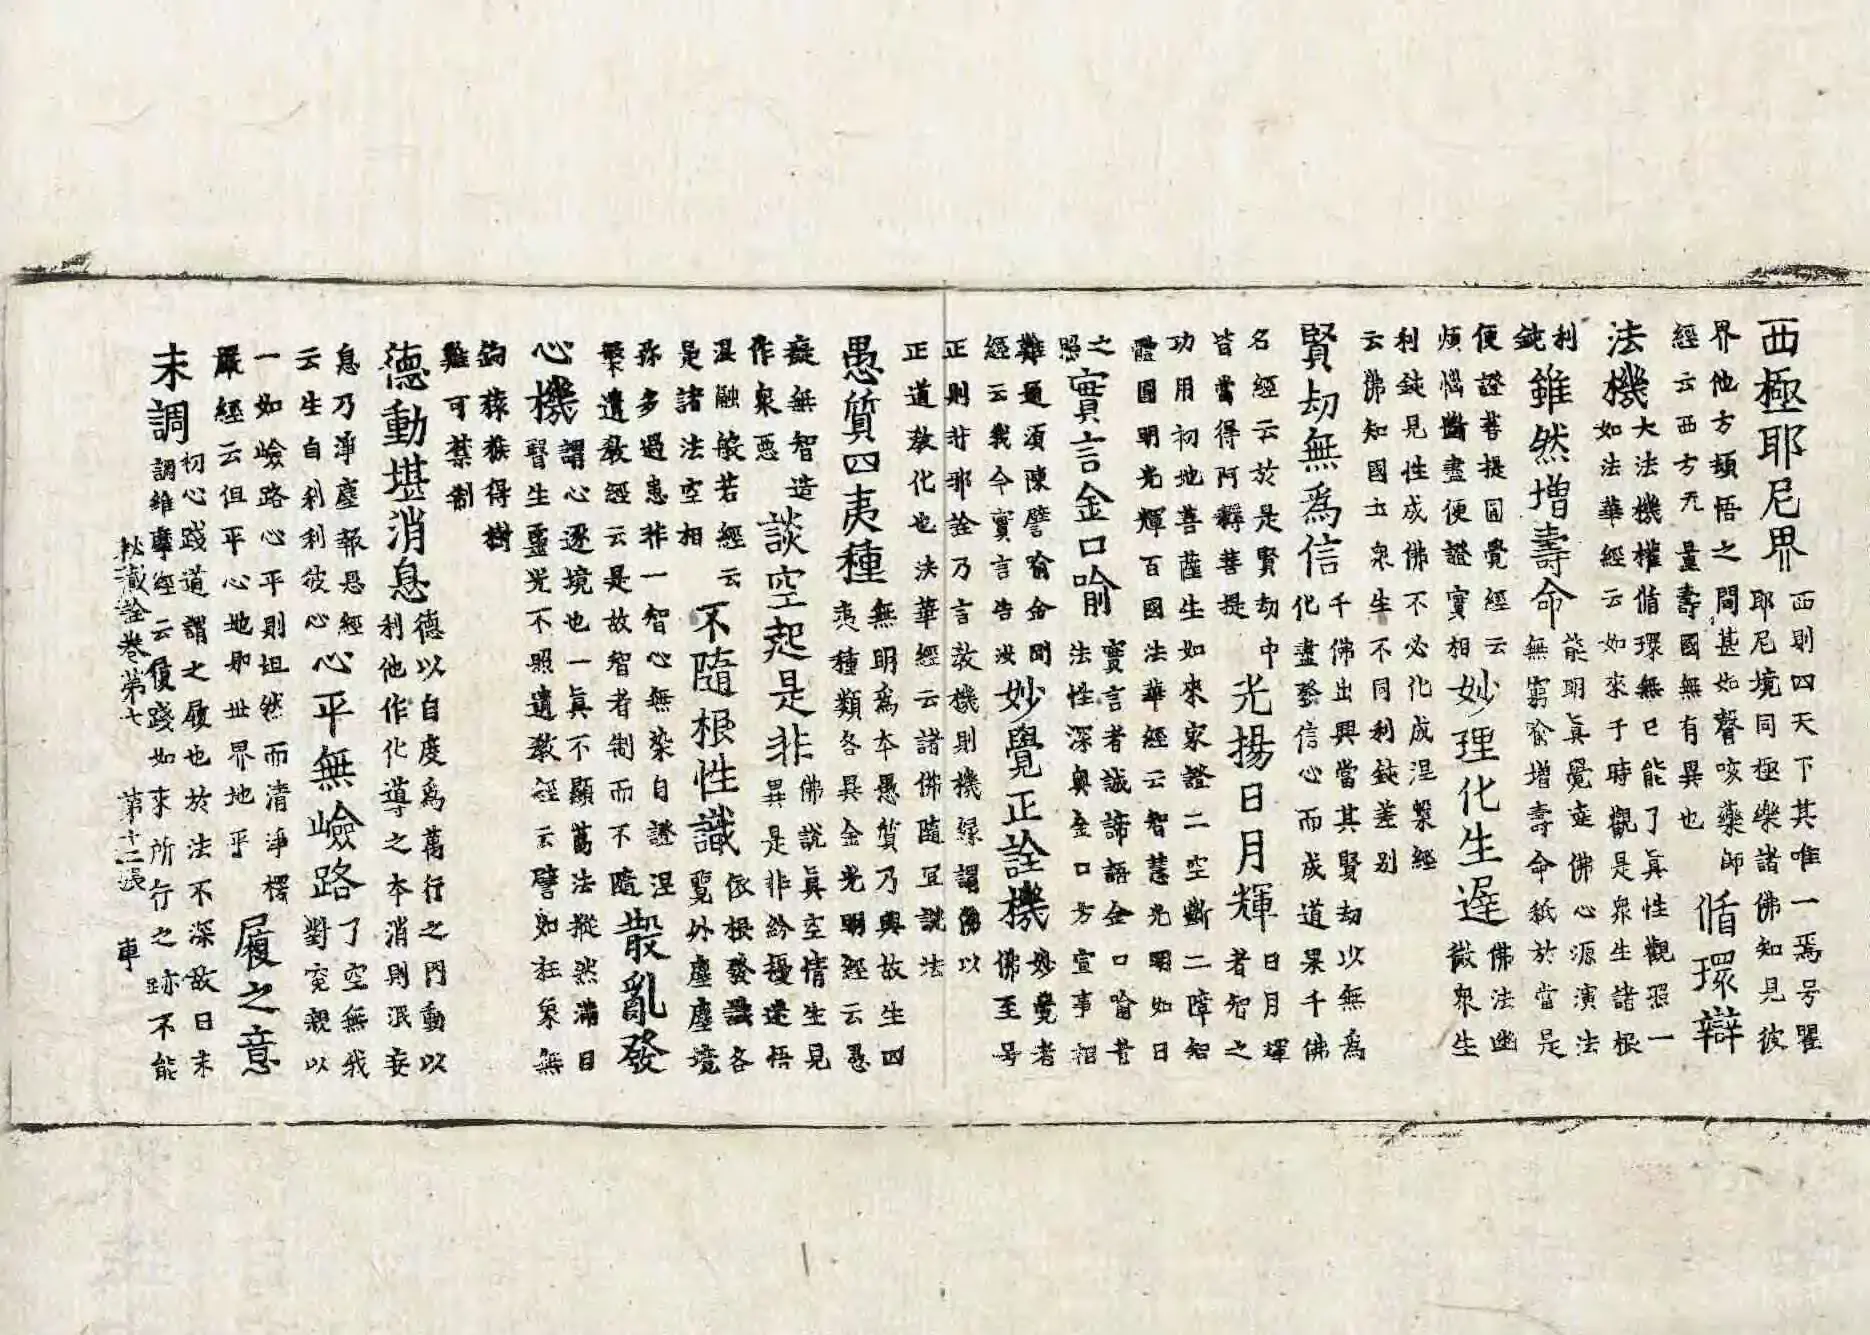 西極耶尼界
西則四天下其唯一焉号瞿
耶尼境同極樂諸佛知見彼
界他方頓悟之間甚如聲咳藥師
經云西方无量壽國無有異也
循環辯
法機
大法機權循環無已能了眞性觀照一
如法華經云如來于時觀是衆生諸根
利
鈍
雖然增壽命
能明眞覺查佛心源演法
無窮喻增壽命祇於當是
便證菩提圓覺經云
煩惱斷盡便證實相
妙理化生遲
佛法幽
微衆生
利鈍見性成佛不必化成涅槃經
云佛知國土衆生不同利鈍差別
賢劫無爲信
千佛出興當其賢劫以無爲
化盡發信心而成道果千佛
名經云於是賢劫中
皆當得阿耨菩提
光揚日月輝
日月輝
者智之
功用初地菩薩生如來家證二空斷二障知
體圓明光輝百國法華經云智慧光明如日
之
照
實言金口喻
實言者誠諦語金口喻者
法性深奥金口方宣事相
難通須陳譬喻金剛
經云我今實言告汝
妙覺正詮機
妙覺者
佛至号
正則非邪詮乃言敎機則機緣謂佛以
正道敎化也法華經云諸佛隨宜說法
愚質四夷種
無明爲本愚質乃興故生四
夷種類各異金光明經云愚
癡無智造
作衆惡
談空起是非
佛說眞空情生見
異是非紛擾遠悟
混融般若經云
是諸法空相
不隨根性識
依根發識各
覽外塵塵境
弥多過患非一智心無染自證涅
槃遺敎經云是故智者制而不隨
散亂發
心機
謂心逐境也一眞不顯萬法摐然滿目
翳生靈光不照遺敎經云譬如狂象無
鈎猿猴得樹
難可禁制
德動堪消息
德以自度爲萬行之門動以
利他作化導之本消則泯妄
息乃淨塵報恩經
云生自利利彼心
心平無嶮路
了空無我
對寃親以
一如嶮路心平則坦然而清淨楞
嚴經云但平心地則世界地平
履之意
未調
初心踐道謂之履也於法不深故曰未
調維摩經云復踐如來所行之跡不能
秘藏詮卷第七 第十二張 車